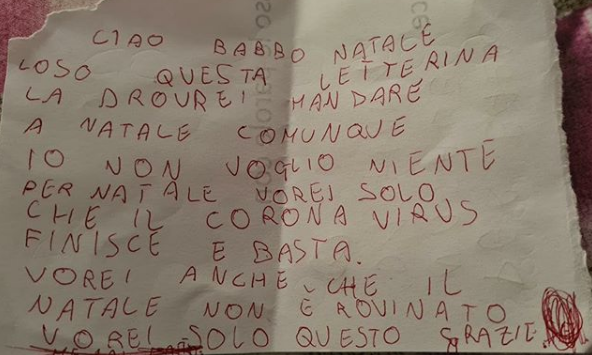 CIAO BABBO NATALE
LOSO QUESTA LETTERINA
LA DROUREI MANDARE
A NATALE COMUNQUE
IO NON VOGLIO NIENTE
PER NATALE VOREI SOLO
CHE IL CORONA VIRUS
FINISCE E BASTA.
VOREI ANCHE CHE IL
NATALE NON È ROVINATO
VOREI SOLO QUESTO GRAZIE